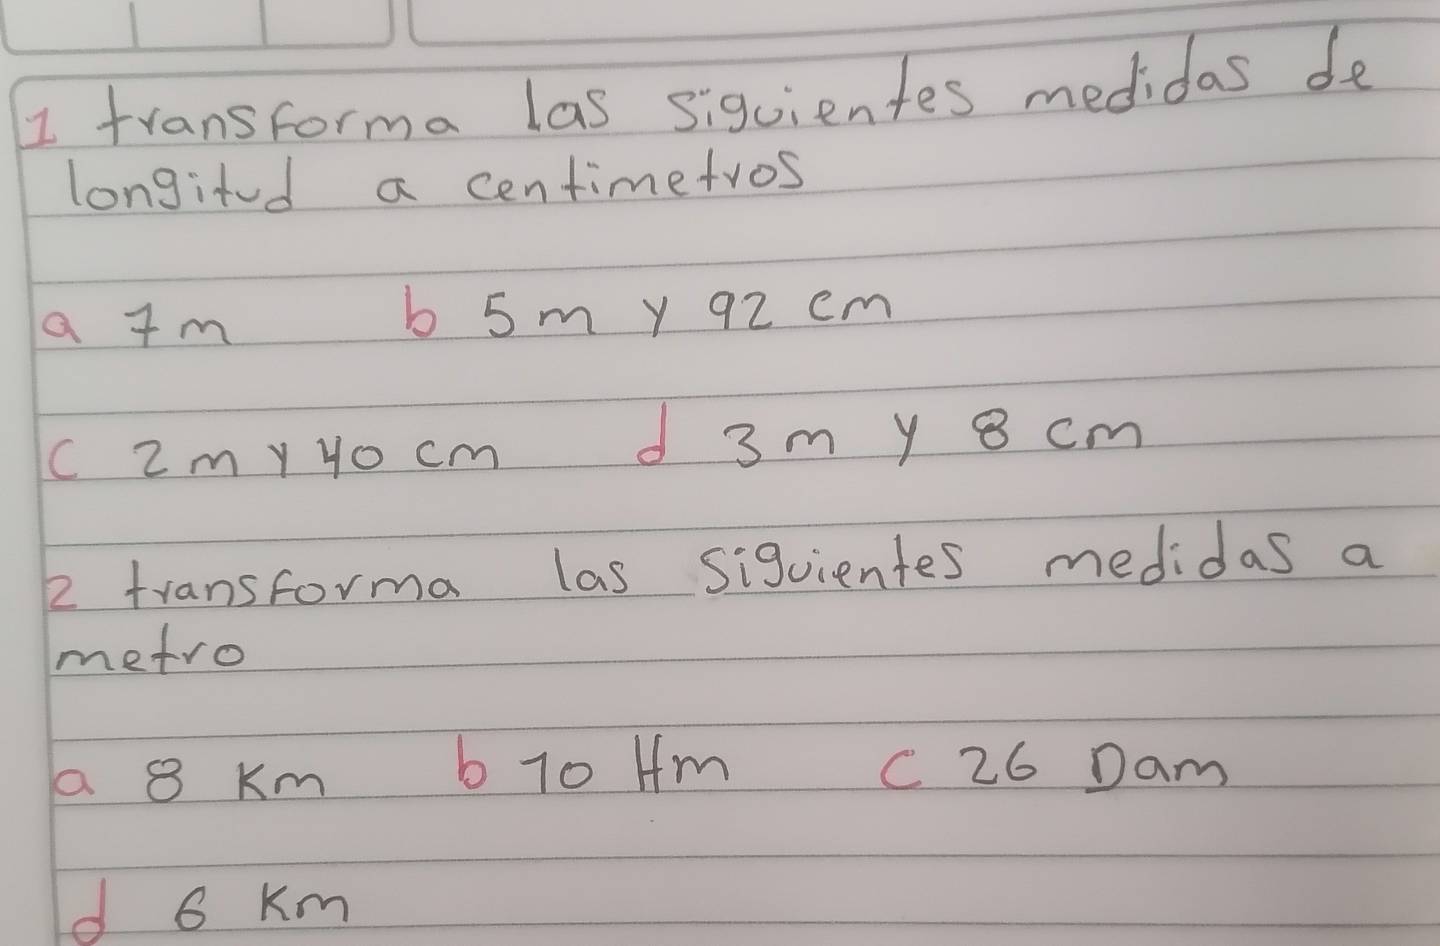 1 transforma las siguientes medidas de
longitud a centimetros
a 7 m b 5 m y 92 cm
c 2 m y 40 cm d 3 m y 8 cm
2 transforma las siguientes medidas a
metro
a 8 Km b 10 Hm c 26 Dam
d 6 Km